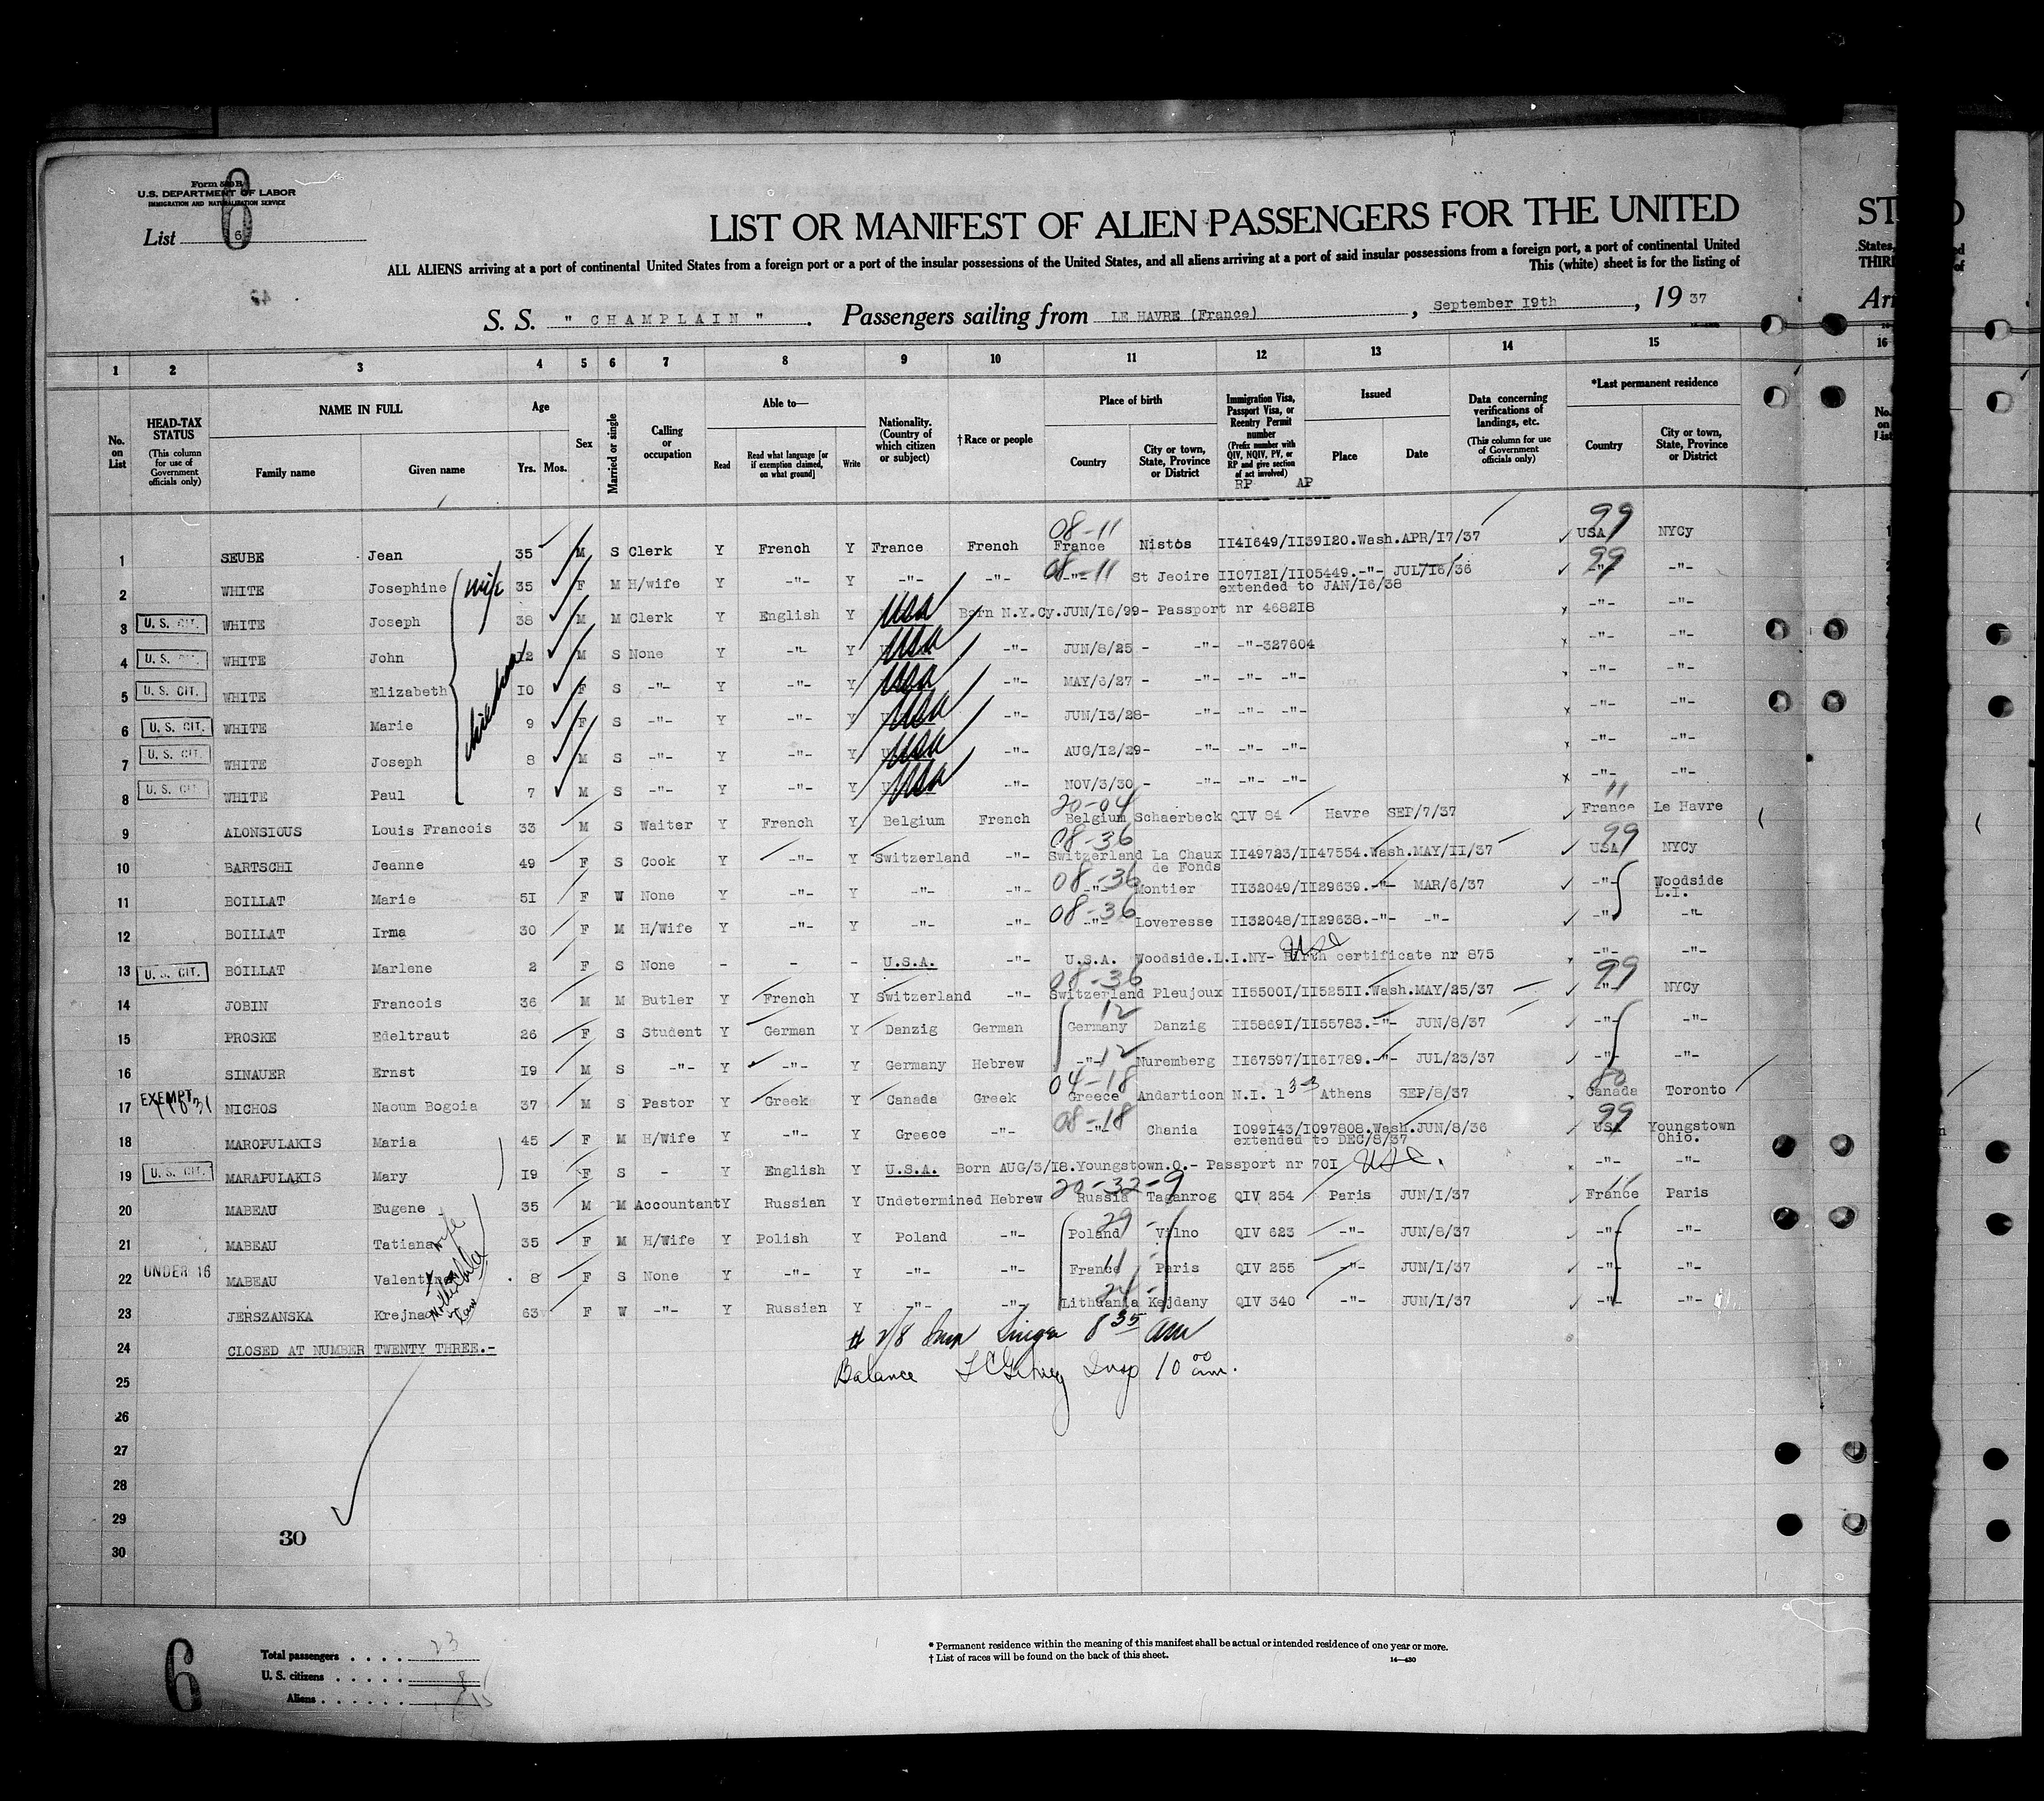 Form 500 B
U.S. DEPARTMENT OF LABOR
IMMIGRATION AND NATURALIZATION SERVICE
List 6
6
LIST OR MANIFEST OF ALIEN PASSENGERS FOR THE UNITED
ALL ALIENS arriving at a port of continental United States from a foreign port or a port of the insular possessions of the United States, and all aliens arriving at a port of said insular possessions from a foreign port, a port of continental United
This (white) sheet is for the listing of
S. S. "CHAMPLAIN". Passengers sailing from LE HAVRE (France), September I9th, 19 37
1 2 3 4 5 6 7 8 9 10 11 12 13 14 15 16
No. on List
HEAD-TAX STATUS (This column for use of Government officials only)
NAME IN FULL
Family name Given name
Age Yrs. Mos.
Sex
Married or single
Calling or occupation
Able to—
Read Read what language [or if exemption claimed, on what ground] Write
Nationality. (Country of which citizen or subject)
† Race or people
Place of birth
Country City or town, State, Province or District
Immigration Visa, Passport Visa, or Reentry Permit number (Prefix number with QIV, NQIV, PV, or RP and give section of act involved)
RP AP
Issued
Place Date
Data concerning verifications of landings, etc. (This column for use of Government officials only)
*Last permanent residence
Country City or town, State, Province or District
08-11 99
1 SEUBE Jean 35 M S Clerk Y French Y France French France Nistos II4I649/II39I20.Wash.APR/I7/37 USA NYCy
2 WHITE Josephine wife 35 F M H/wife Y -"- Y -"- -"- 08-11 -"- St Jeoire II07I2I/II05449.-"- JUL/I6/36 99 -"- -"-
extended to JAN/I6/38
3 U. S. CIT. WHITE Joseph 38 M M Clerk Y English Y USA Born N.Y.Cy.JUN/I6/99- Passport nr 4682I8 -"- -"-
children
4 U. S. CIT. WHITE John I2 M S None Y -"- Y USA -"- JUN/8/25 - -"- -"-327604 -"- -"-
5 U. S. CIT. WHITE Elizabeth I0 F S -"- Y -"- Y USA -"- MAY/6/27 - -"- -"- -"- -"- -"-
6 U. S. CIT. WHITE Marie 9 F S -"- Y -"- Y USA -"- JUN/I3/28- -"- -"- -"- -"- -"-
7 U. S. CIT. WHITE Joseph 8 M S -"- Y -"- Y USA -"- AUG/I2/29- -"- -"- -"- -"- -"-
8 U. S. CIT. WHITE Paul 7 M S -"- Y -"- Y USA -"- NOV/3/30 - -"- -"- -"- -"- -"-
20-04 11
9 ALONSIOUS Louis Francois 33 M S Waiter Y French Y Belgium French Belgium Schaerbeck QIV 84 Havre SEP/7/37 France Le Havre
08-36 99
10 BARTSCHI Jeanne 49 F S Cook Y -"- Y Switzerland -"- Switzerland La Chaux de Fonds II49723/II47554.Wash.MAY/II/37 USA NYCy
08-36
11 BOILLAT Marie 5I F W None Y -"- Y -"- -"- -"- Montier II32049/II29639.-"- MAR/6/37 -"- Woodside L.I.
08-36
12 BOILLAT Irma 30 F M H/Wife Y -"- Y -"- -"- -"- Loveresse II32048/II29638.-"- -"- -"- -"-
13 U. S. CIT. BOILLAT Marlene 2 F S None - - - U.S.A. -"- U.S.A. Woodside.L.I.NY- Birth certificate nr 875 USC -"- -"-
08-36 99
14 JOBIN Francois 36 M M Butler Y French Y Switzerland -"- Switzerland Pleujoux II5500I/II525II.Wash.MAY/25/37 -"- NYCy
12
15 PROSKE Edeltraut 26 F S Student Y German Y Danzig German Germany Danzig II5869I/II55783.-"- JUN/8/37 -"- -"-
16 SINAUER Ernst I9 M S -"- Y -"- Y Germany Hebrew -"- 12 Nuremberg II67597/II6I789.-"- JUL/23/37 -"- -"-
04-18 80
17 EXEMPT NICHOS Naoum Bogoia 37 M S Pastor Y Greek Y Canada Greek Greece Andarticon N.I. 1 3-3 Athens SEP/8/37 Canada Toronto
08-18 99
18 MAROPULAKIS Maria 45 F M H/Wife Y -"- Y Greece -"- -"- Chania I099I43/I097808.Wash.JUN/8/36 USA Youngstown Ohio.
extended to DEC/8/37
19 U. S. CIT. MARAPULAKIS Mary I9 F S - Y English Y U.S.A. Born AUG/3/I8.Youngstown.O.- Passport nr 70I USC. -"- -"-
20-32-9 11
20 MABEAU Eugene 35 M M Accountant Y Russian Y Undetermined Hebrew Russia Taganrog QIV 254 Paris JUN/I/37 France Paris
29
21 MABEAU Tatiana wife 35 F M H/Wife Y Polish Y Poland -"- Poland Vilno QIV 623 -"- JUN/8/37 -"- -"-
11
22 UNDER 16 MABEAU Valentine child 8 F S None Y -"- Y -"- -"- France Paris QIV 255 -"- JUN/I/37 -"- -"-
24
23 JERSZANSKA Krejna Mother in Law 63 F W -"- Y Russian Y -"- -"- Lithuania Kejdany QIV 340 -"- JUN/I/37 -"- -"-
24 CLOSED AT NUMBER TWENTY THREE.-
8 35 am
25 Balance Insp 10 00 am.
26
27
28
29
30
30
6
Total passengers . . . . 23
U. S. citizens . . . . . 8
Aliens . . . . . . 15
* Permanent residence within the meaning of this manifest shall be actual or intended residence of one year or more.
† List of races will be found on the back of this sheet.
14—430